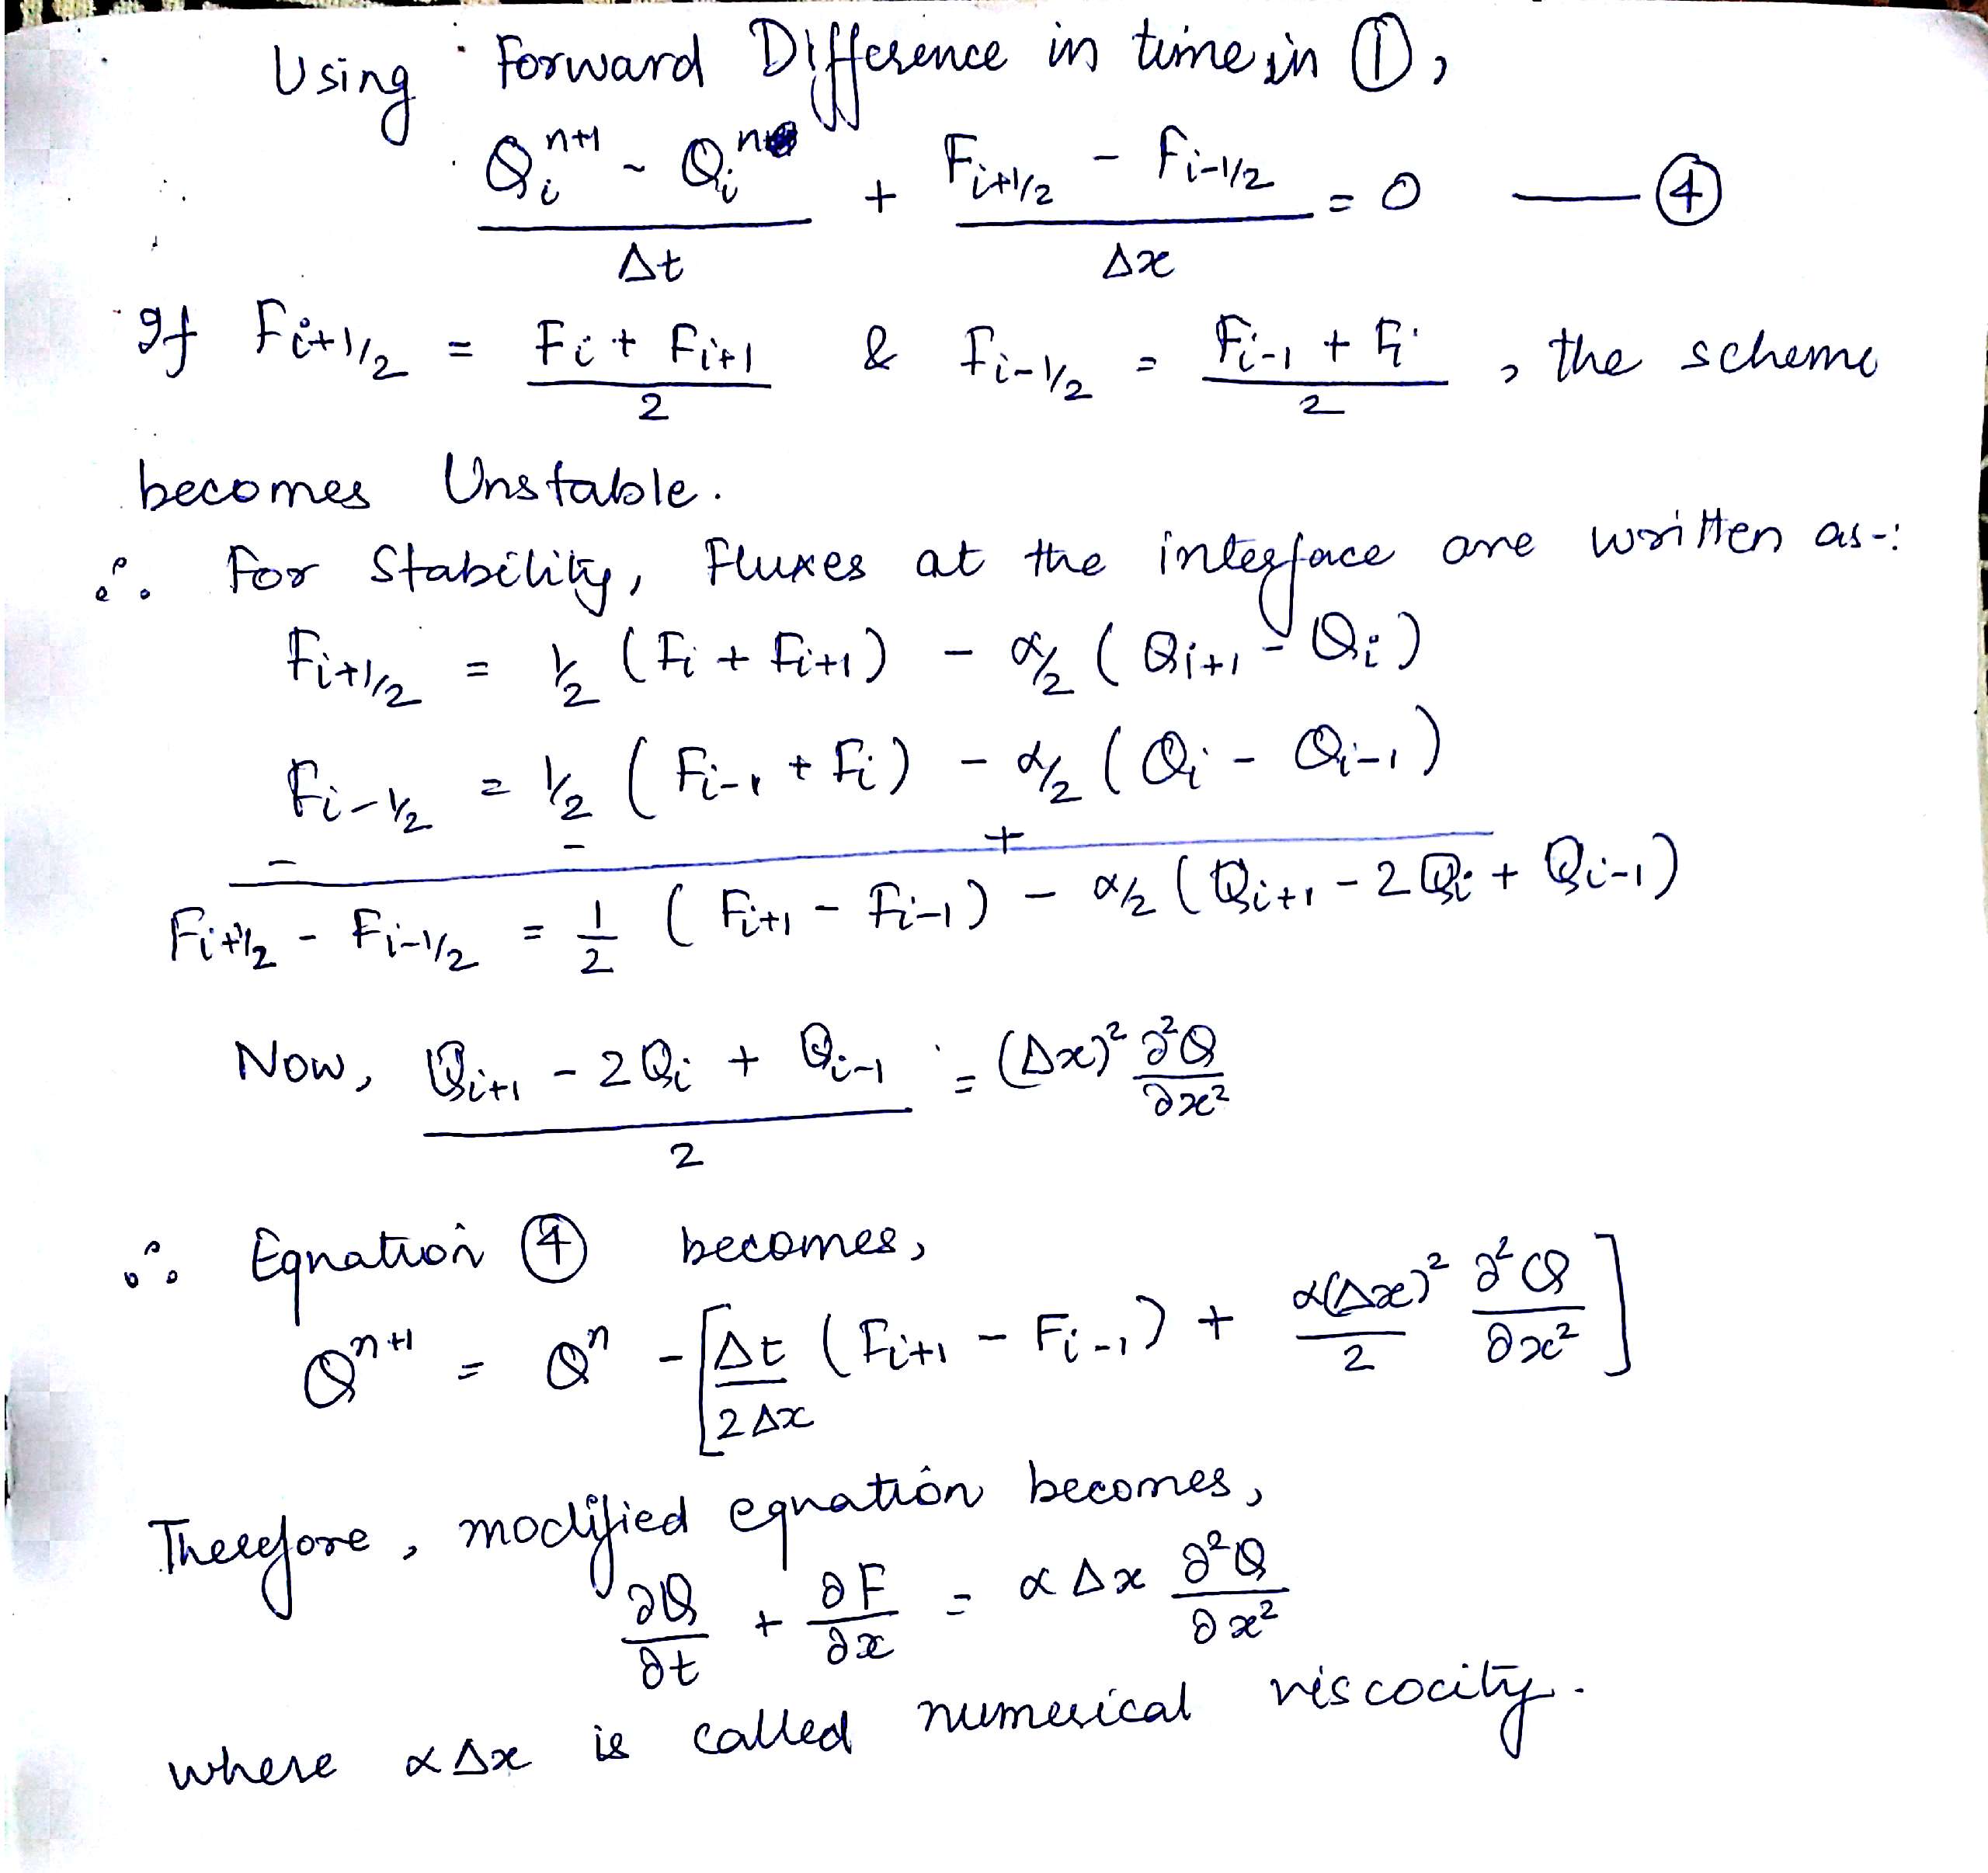 Using Forward Difference in time in ①,
(Q_i^{n+1} - Q_i^n)/Δt + (F_{i+1/2} - F_{i-1/2})/Δx = 0 — ④
If F_{i+1/2} = (F_i + F_{i+1})/2 & F_{i-1/2} = (F_{i-1} + F_i)/2 , the scheme
becomes Unstable.
∴ For Stability, Fluxes at the interface are written as-:
F_{i+1/2} = 1/2 (F_i + F_{i+1}) - α/2 (Q_{i+1} - Q_i)
F_{i-1/2} = 1/2 (F_{i-1} + F_i) - α/2 (Q_i - Q_{i-1})
- - +
F_{i+1/2} - F_{i-1/2} = 1/2 (F_{i+1} - F_{i-1}) - α/2 (Q_{i+1} - 2Q_i + Q_{i-1})
Now, (Q_{i+1} - 2Q_i + Q_{i-1})/2 = (Δx)² ∂²Q/∂x²
∴ Equation ④ becomes,
Q^{n+1} = Q^n - [Δt/2Δx (F_{i+1} - F_{i-1}) + α(Δx)²/2 ∂²Q/∂x²]
Therefore, modified equation becomes,
∂Q/∂t + ∂F/∂x = αΔx ∂²Q/∂x²
where αΔx is called numerical viscocity.